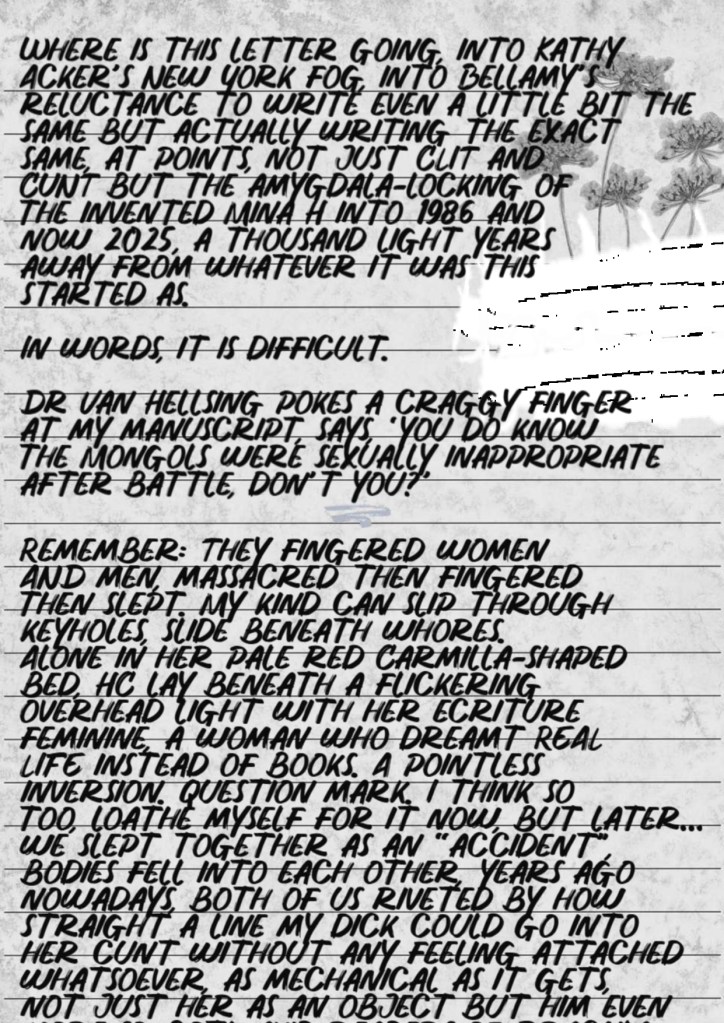 WHERE IS THIS LETTER GOING, INTO KATHY
ACKER'S NEW YORK FOG, INTO BELLAMY'S
RELUCTANCE TO WRITE EVEN A LITTLE BIT THE
SAME BUT ACTUALLY WRITING THE EXACT
SAME, AT POINTS, NOT JUST CLIT AND
CUNT BUT THE AMYGDALA-LOCKING OF
THE INVENTED MINA H INTO 1986 AND
NOW 2025, A THOUSAND LIGHT YEARS
AWAY FROM WHATEVER IT WAS THIS
STARTED AS.
IN WORDS, IT IS DIFFICULT.
DR VAN HELLSING POKES A CRAGGY FINGER
AT MY MANUSCRIPT, SAYS, 'YOU DO KNOW
THE MONGOLS WERE SEXUALLY INAPPROPRIATE
AFTER BATTLE, DON'T YOU?'
REMEMBER: THEY FINGERED WOMEN
AND MEN, MASSACRED THEN FINGERED
THEN SLEPT. MY KIND CAN SLIP THROUGH
KEYHOLES, SLIDE BENEATH WHORES.
ALONE IN HER PALE RED CARMILLA-SHAPED
BED, HC LAY BENEATH A FLICKERING
OVERHEAD LIGHT WITH HER ECRITURE
FEMININE, A WOMAN WHO DREAMT REAL
LIFE INSTEAD OF BOOKS. A POINTLESS
INVERSION. QUESTION MARK. I THINK SO
TOO, LOATHE MYSELF FOR IT NOW, BUT LATER...
WE SLEPT TOGETHER AS AN "ACCIDENT"
BODIES FELL INTO EACH OTHER, YEARS AGO
NOWADAYS, BOTH OF US RIVETED BY HOW
STRAIGHT A LINE MY DICK COULD GO INTO
HER CUNT WITHOUT ANY FEELING ATTACHED
WHATSOEVER, AS MECHANICAL AS IT GETS,
NOT JUST HER AS AN OBJECT BUT HIM EVEN